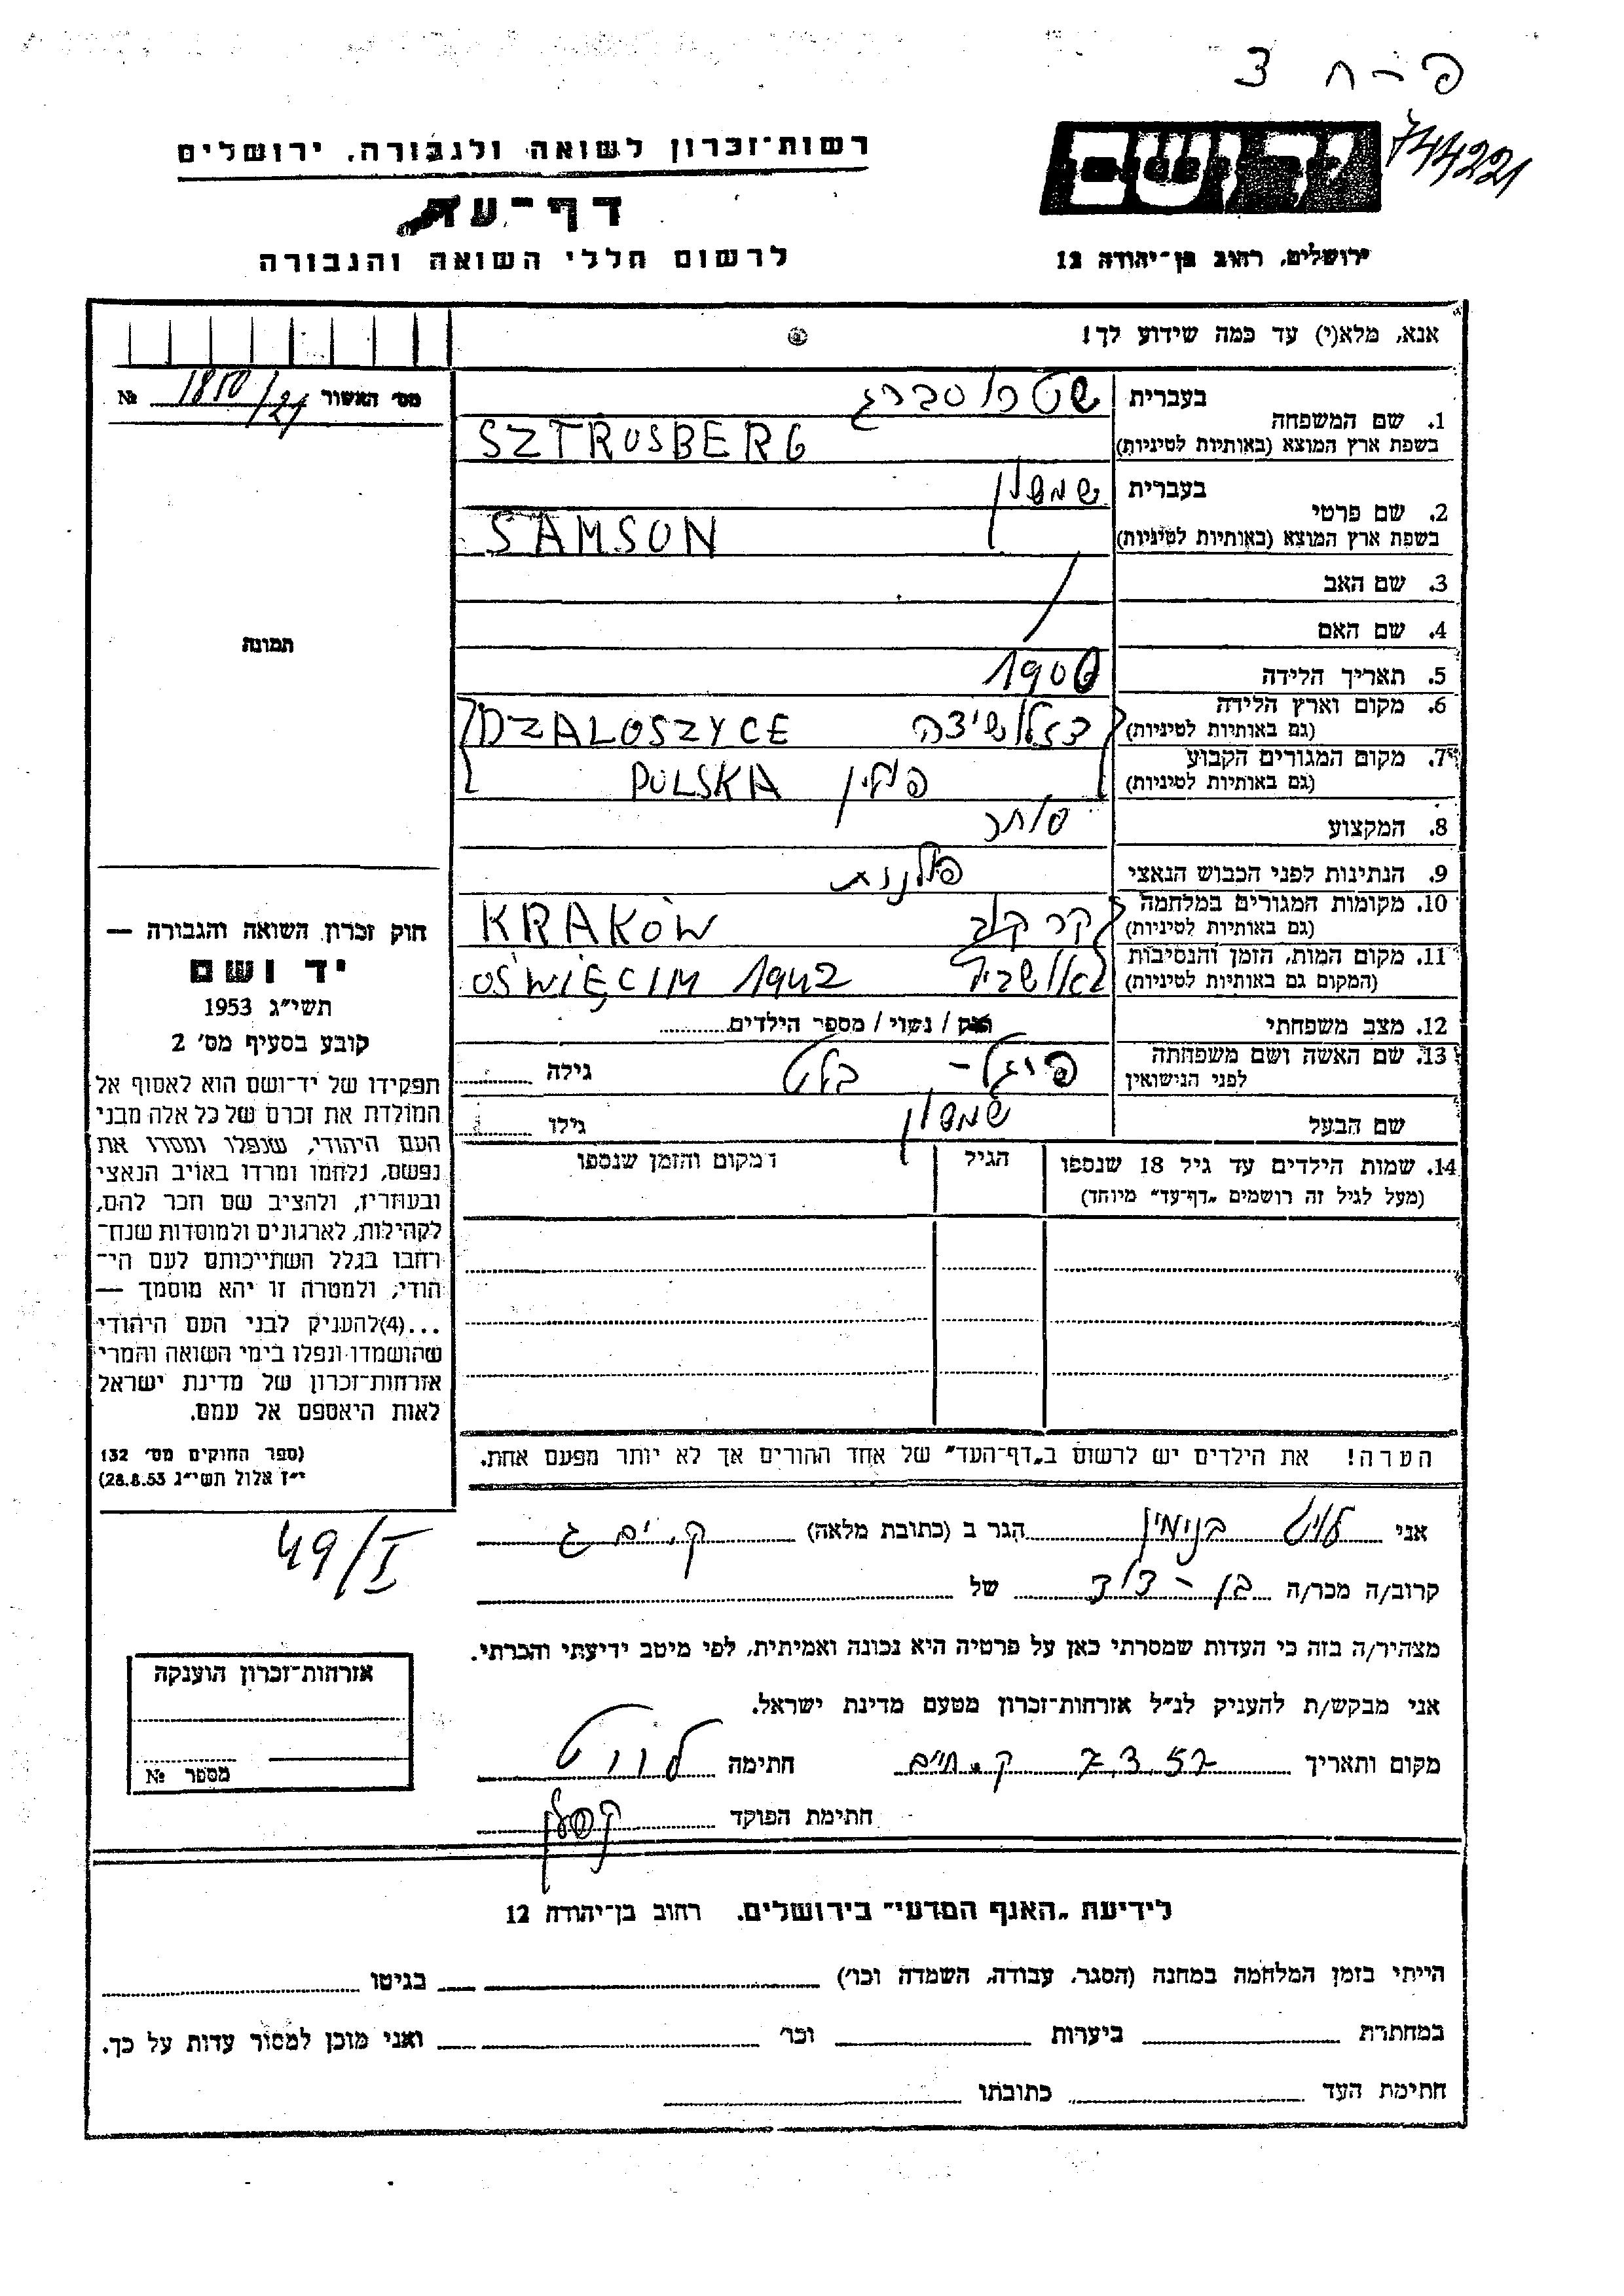 פ-ח 3
744221
יד ושם
ירושלים, רחוב בן-יהודה 12
רשות־זכרון לשואה ולגבורה, ירושלים
דף-עד
לרשום חללי השואה והגבורה
אנא, מלא(י) עד כמה שידוע לך!
מס' האשור № 1810/21
1. שם המשפחה בעברית שטרוסברג
בשפת ארץ המוצא (באותיות לטיניות) SZTROSBERG
2. שם פרטי בעברית שמשון
בשפת ארץ המוצא (באותיות לטיניות) SAMSON
3. שם האב
4. שם האם
5. תאריך הלידה 1900
6. מקום וארץ הלידה (גם באותיות לטיניות) דזלושיצה DZALOSZYCE
7. מקום המגורים הקבוע (גם באותיות לטיניות) פולין POLSKA
8. המקצוע סוחר
9. הנתינות לפני הכבוש הנאצי פולנית
10. מקומות המגורים במלחמה (גם באותיות לטיניות) קרקוב KRAKÓW
11. מקום המות, הזמן והנסיבות (המקום גם באותיות לטיניות) אושביץ OŚWIĘCIM 1942
12. מצב משפחתי רוק / נשוי / מספר הילדים
13. שם האשה ושם משפחתה לפני הנישואין פיגל - בלט גילה
שם הבעל שמשון גילו
14. שמות הילדים עד גיל 18 שנספו (מעל לגיל זה רושמים „דף-עד" מיוחד) הגיל המקום והזמן שנספו
תמונה
חוק זכרון השואה והגבורה —
יד ושם
תשי"ג 1953
קובע בסעיף מס' 2
תפקידו של יד-ושם הוא לאסוף אל
המולדת את זכרם של כל אלה מבני
העם היהודי, שנפלו ומסרו את
נפשם, נלחמו ומרדו באויב הנאצי
ובעוזריו, ולהציב שם וזכר להם,
לקהילות, לארגונים ולמוסדות שנח־
רבו בגלל השתייכותם לעם הי־
הודי, ולמטרה זו יהא מוסמך —
...(4)להעניק לבני העם היהודי
שהושמדו ונפלו בימי השואה והמרי
אזרחות־זכרון של מדינת ישראל
לאות היאספם אל עמם.
(ספר החוקים מס' 132
י"ז אלול תשי"ג 28.8.53)
הערה! את הילדים יש לרשום ב„דף-העד" של אחד ההורים אך לא יותר מפעם אחת.
49/I
אני בנימין הגר ב (כתובת מלאה) ק. ים ג
קרוב/ה מכר/ה בן - דוד של
מצהיר/ה בזה כי העדות שמסרתי כאן על פרטיה היא נכונה ואמיתית, לפי מיטב ידיעתי והכרתי.
אני מבקש/ת להעניק לנ"ל אזרחות־זכרון מטעם מדינת ישראל.
מקום ותאריך 7.3.57 ק. חתימה
חתימת הפוקד
אזרחות־זכרון הוענקה
מספר №
לידיעת „האגף המדעי" בירושלים, רחוב בן-יהודה 12
הייתי בזמן המלחמה במחנה (הסגר, עבודה, השמדה וכו') בגיטו
במחתרת ביערות וכו' ואני מוכן למסור עדות על כך.
חתימת העד כתובתו